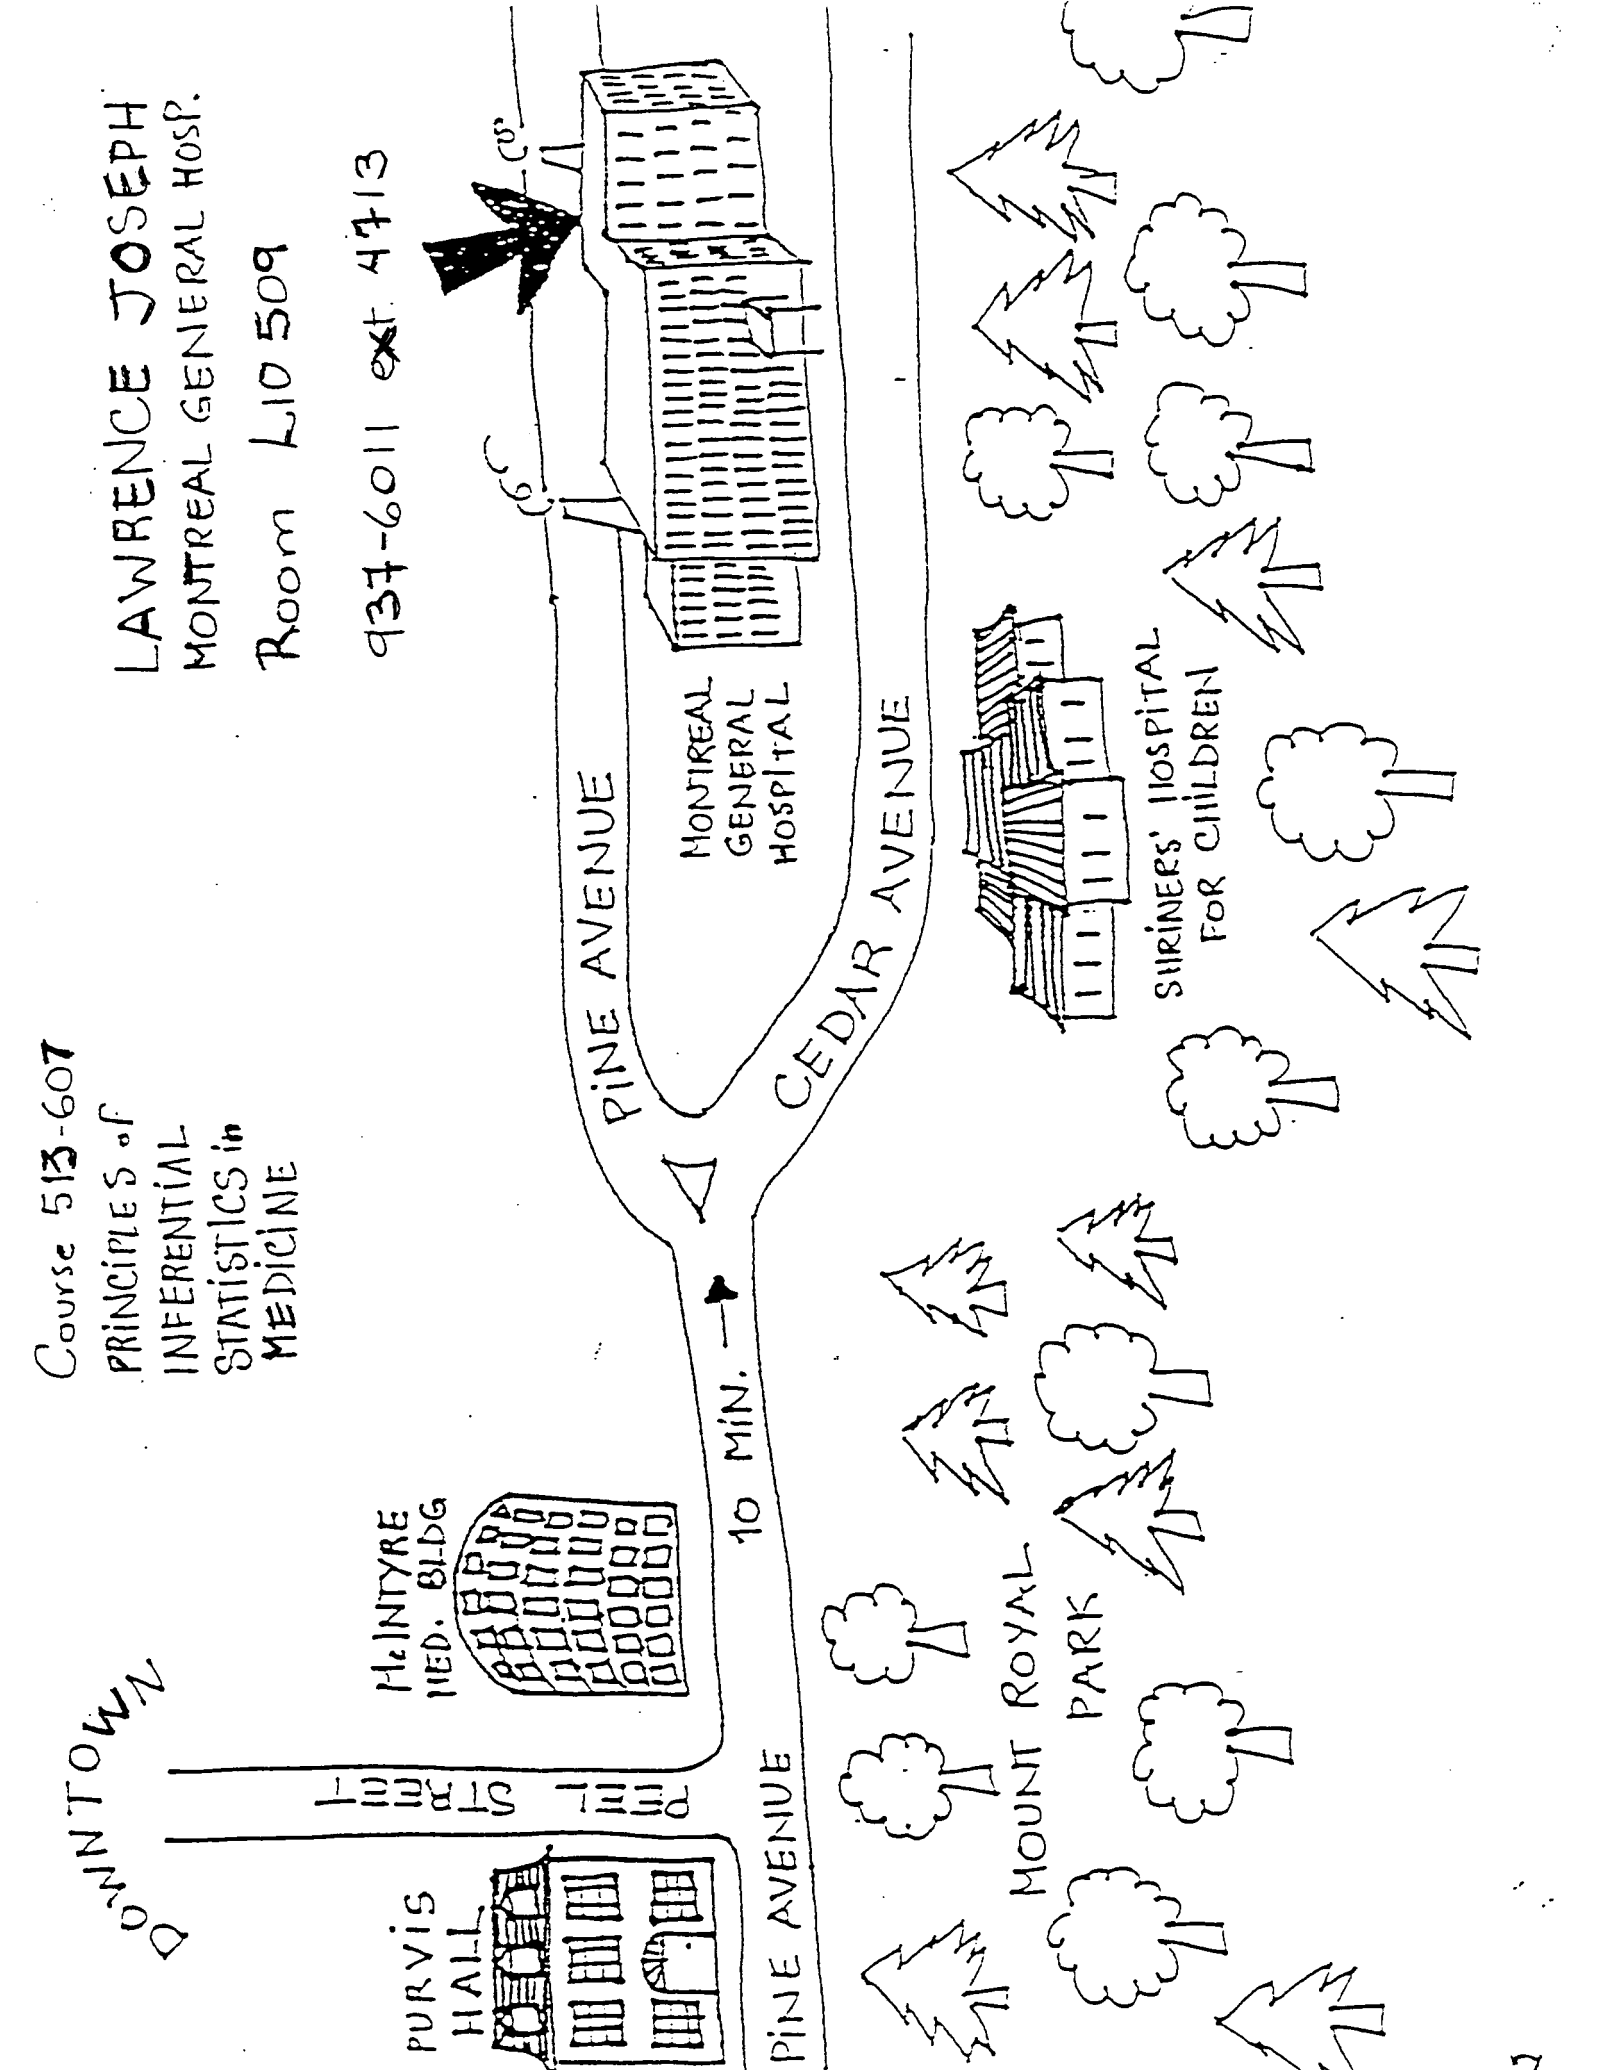 DOWNTOWN
Course 513-607
PRINCIPLES of
INFERENTIAL
STATISTICS in
MEDICINE
LAWRENCE JOSEPH
MONTREAL GENERAL HOSP.
Room L10 509
937-6011 ext 4713
PURVIS
HALL
PEEL STREET
McINTYRE
MED. BLDG
PINE AVENUE
10 MIN.
PINE AVENUE
CEDAR AVENUE
MONTREAL
GENERAL
HOSPITAL
MOUNT ROYAL
PARK
SHRINERS' HOSPITAL
FOR CHILDREN